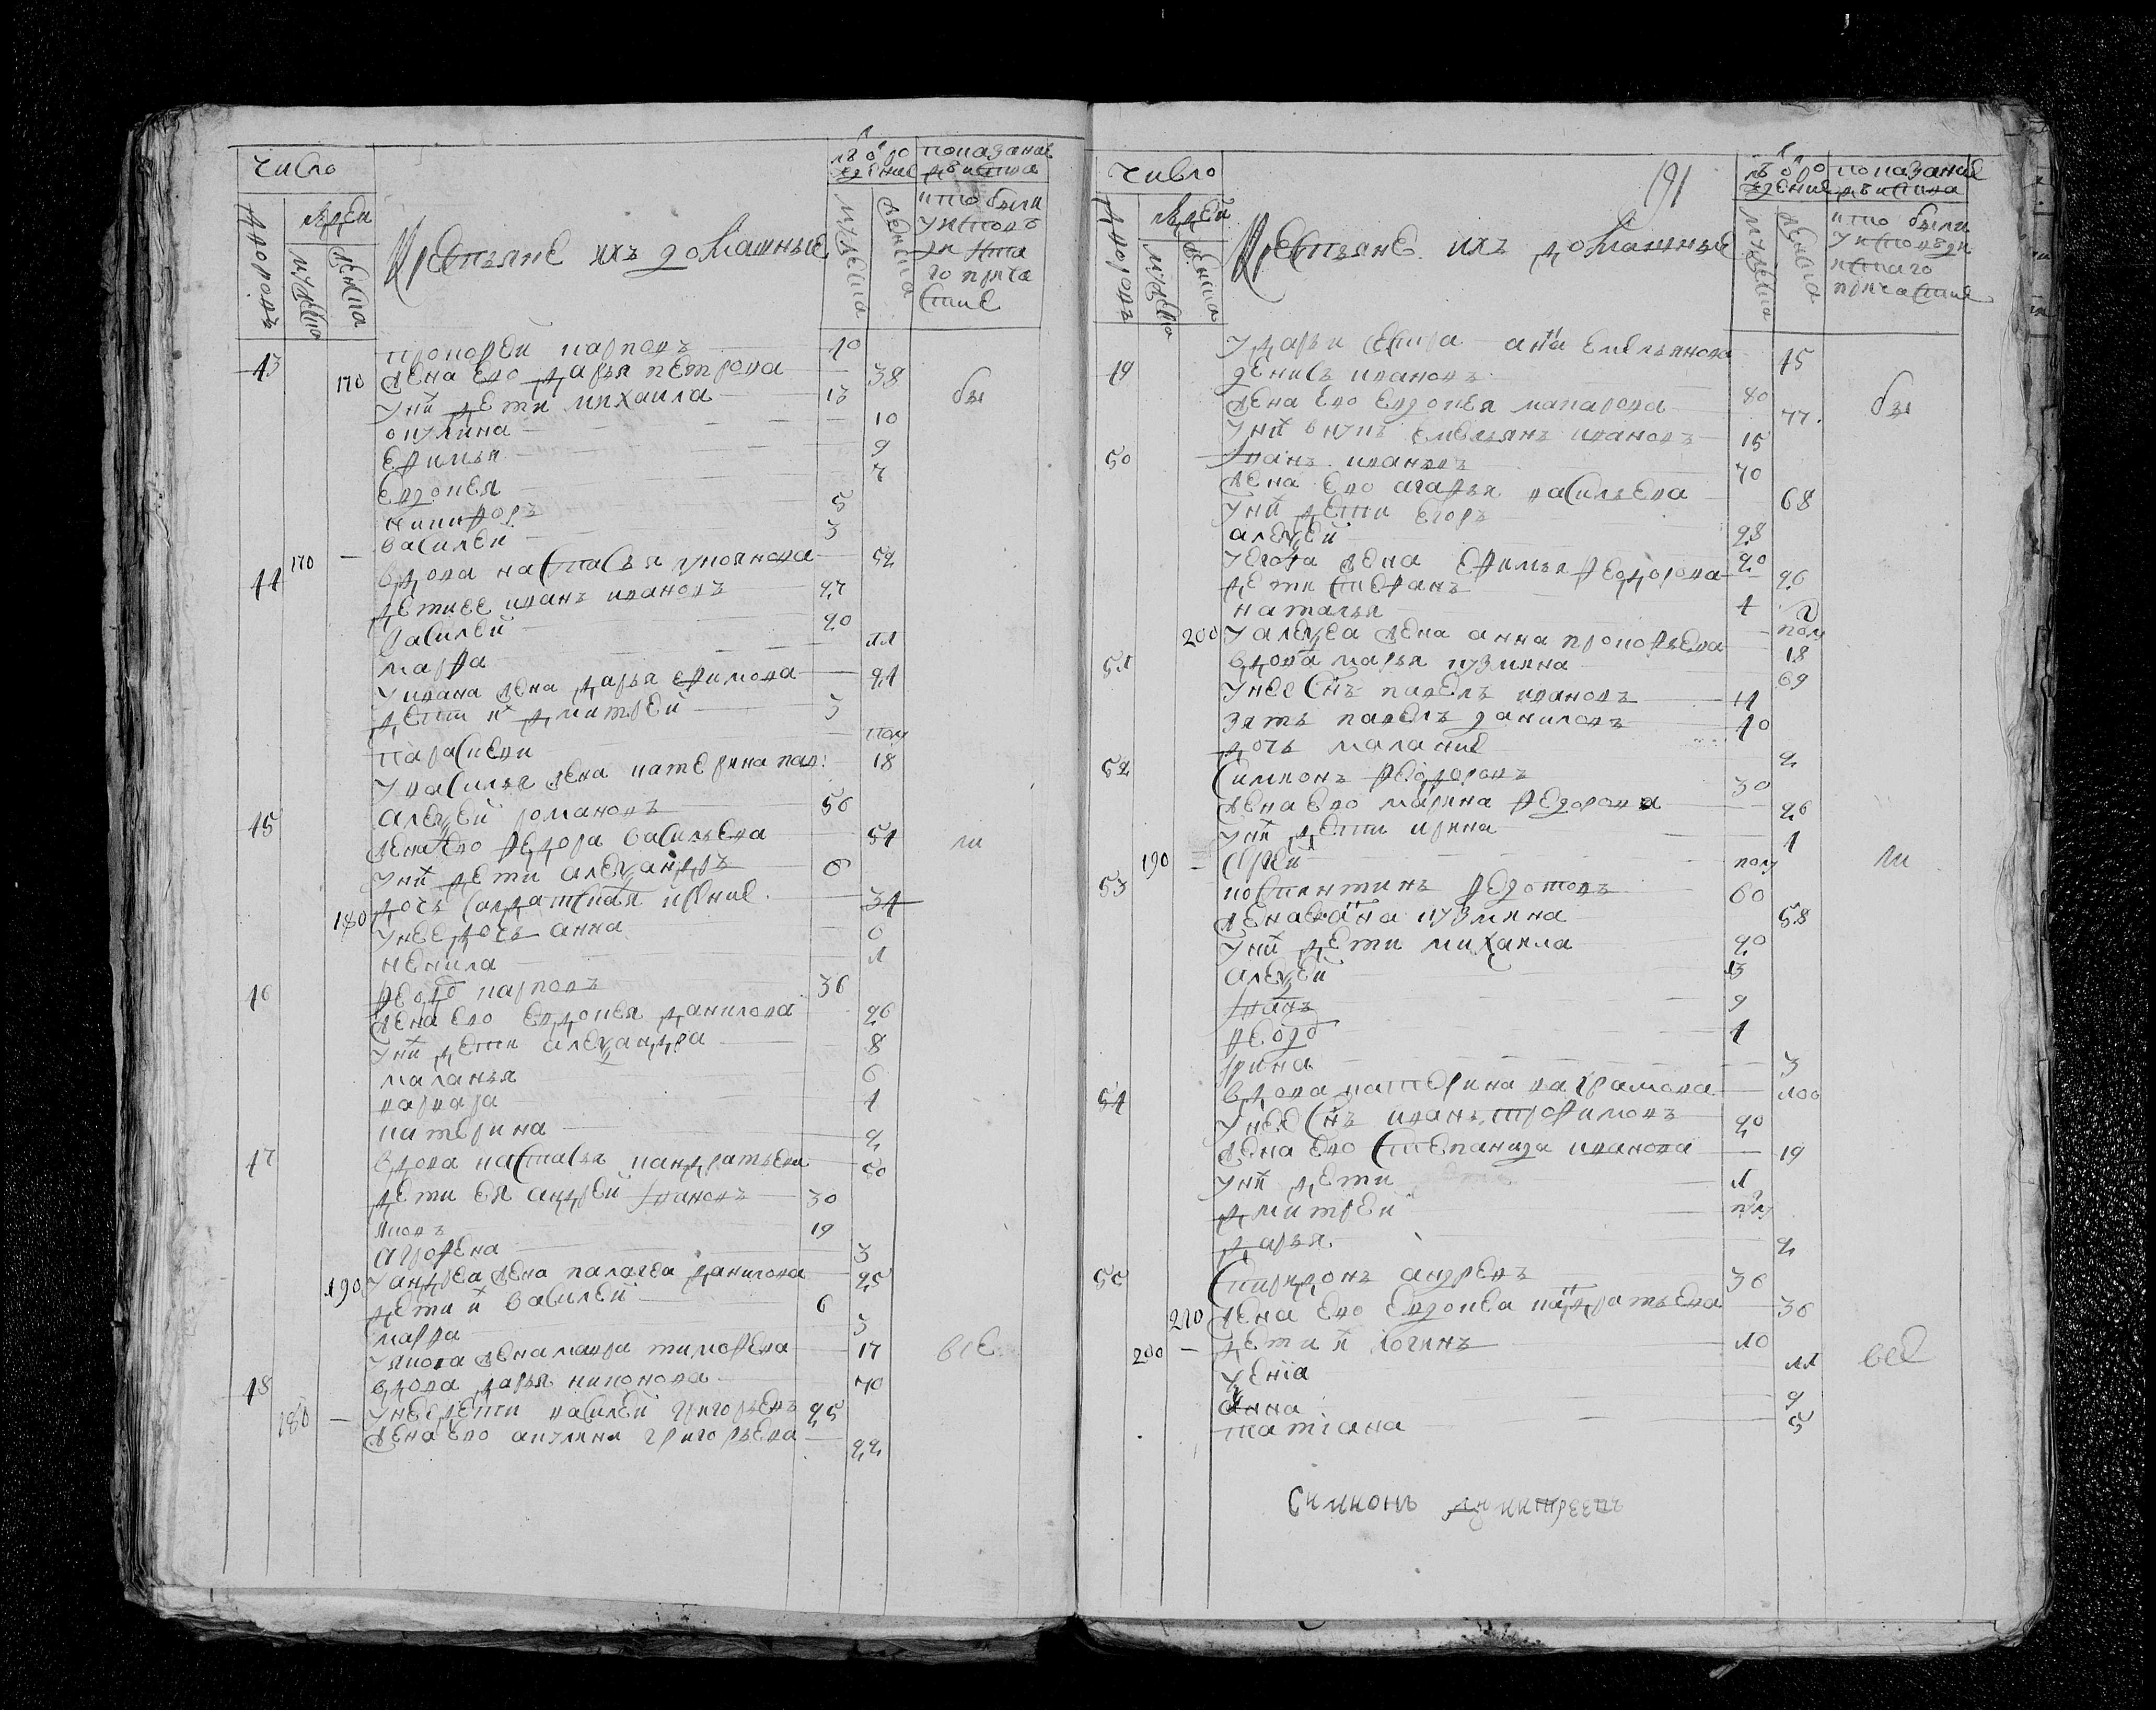 число
люди
дворовъ
мужеска
женска
Крестьяне ихъ домашные
мужеска
женска
показание
действа
кто были
43 прокофеи карповъ 40
170 жена ево дарья петрова 38
у них дети михаила 13
окулина 10
ефимья 9
евдокея 7
никифоръ 5
василеи 3
44 170 вдова настасья лукоянова 52
дети ее иванъ ивановъ 27
василеи 20
марфа 11
у ивана жена дарья ефимова 24
дети их дмитреи 3
парасковья пол
у василья жена катерина 18
45 алексеи романовъ 56
жена ево федора васильева 54
у них дети александръ 6
180 дочь салдатская 34
у нее дочь анна 6
ненила 1
46 федоръ карповъ 36
жена ево евдокея данилова 26
у них дети александра 8
маланья 6
варвара 4
катерина 2
47 вдова настасья кандратьева 50
дети ея андреи ивановъ 30
яковъ 19
агрофена 3
190 у андрея жена палагея данилова 25
дети их василеи 6
марфа 3
у якова жена мавра тимофеева 17
48 вдова дарья никонова 70
180 у нее дети василеи григорьевъ 25
жена ево акулина григорьева 22
бы
ли
все
191
число
люди
дворовъ
мужеска
женска
Крестьяне ихъ домашные
мужеска
женска
показание
действа
кто были
у исповеди
и стаго
причастие
у дарьи сестра анна емельянова 45
49 денисъ ивановъ 80
жена ево евдокея макарова 77
у них внукъ емельянъ ивановъ 15
50 Иванъ ивановъ 70
жена ево агафья васильева 68
у них дети егоръ 28
алексеи 20
у егора жена ефимья федорова 26
дети степанъ 4
наталья пол
200 у алексея жена анна прокофьева 18
51 вдова марья кузмина 69
у нее снъ павелъ ивановъ 44
зять павелъ даниловъ 40
дочь маланиа 2
52 Симионъ федоровъ 30
жена ево марина федорова 26
у них дети ирина 4
190 сергеи полу
53 костянтинъ федотовъ 60
жена ево анна кузмина 58
у них дети михаила 20
алексеи 13
Иванъ 9
федоръ 4
Ирина 3
54 вдова катерина 100
у нее снъ иванъ трофимовъ 20
жена ево степанида иванова 19
у них дети 1
дмитреи полу
дарья 2
55 Спиридонъ андреевъ 36
210 жена ево евдокея кандратьева 36
200 дети их логинъ 10
ксениа 11
анна 9
татиана 5
бы
ли
все
Симионъ дмитреевъ